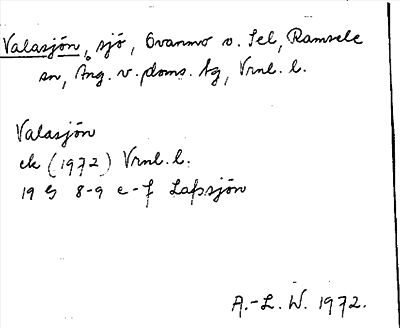 Valasjön, sjö, Ovanmo v. Sel, Ramsele
sn, Ång. v. doms. hg, Vrnl. l.
Valasjön
ek (1972) Vrnl. l.
19 G 8-9 e-f Lafssjön
A.-L. W. 1972.